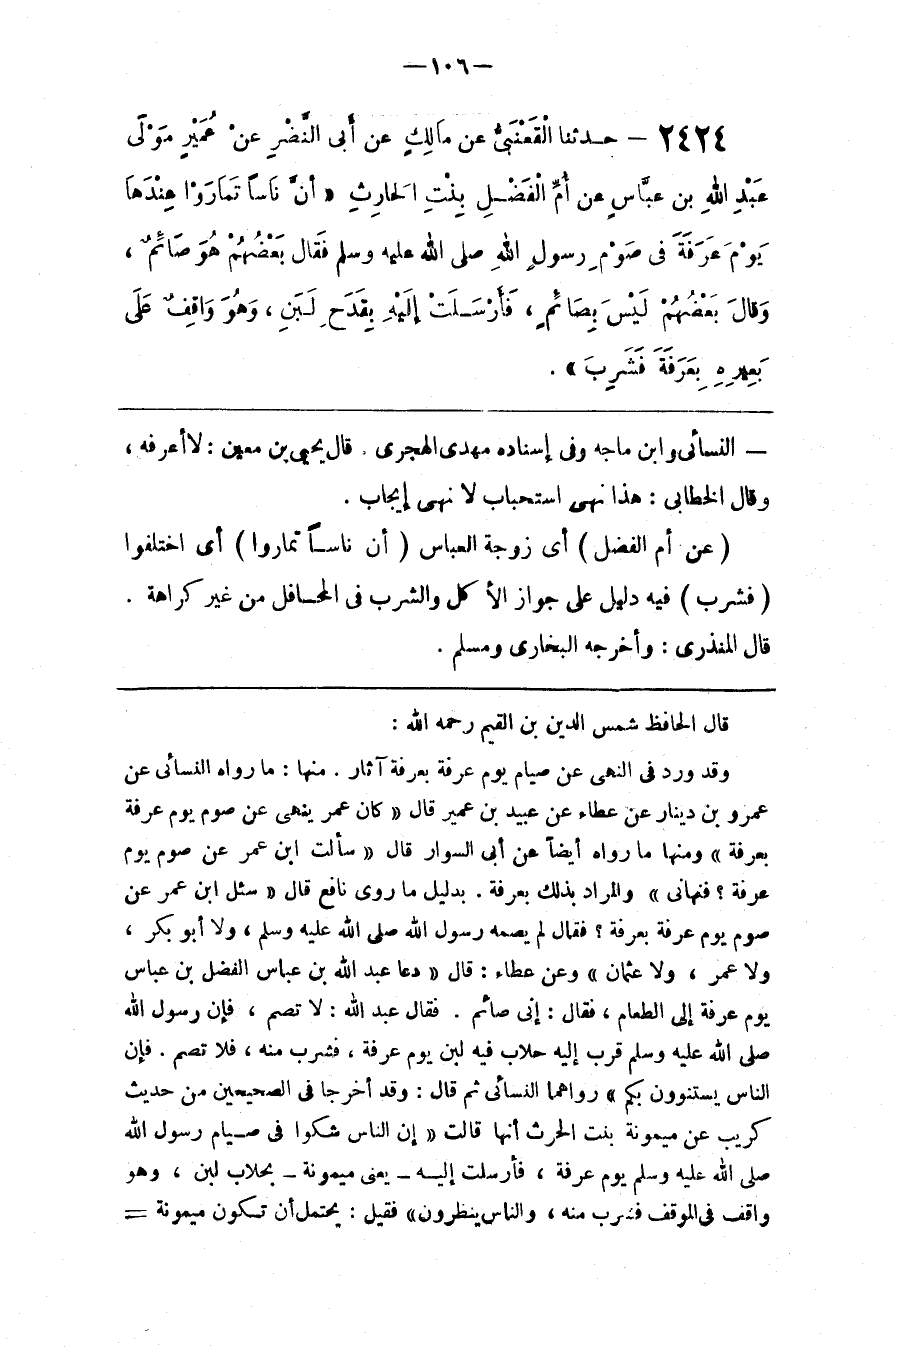 —١٠٦—
٢٤٢٤ – حـدثنا الْقَعْنَبىُّ عن مَالِكٍ عن أَبى النَّضْرِ عنْ عُمَيْرٍ مَوْلَى
عَبْدِ اللهِ بن عبَّاسٍ عن أُمِّ الْفَضْـلِ بِنْتِ الَحارِثِ « أنَّ نَاساً تَمَارَوْا عِنْدَهَا
يَوْمَ عَرَفَةَ فى صَوْمِ رسولِ اللهِ صلى الله عليه وسلم فقال بَعْضُهُمْ هُوَ صَائمٌ ،
وَقالَ بَعْضُهُمْ لَيْسَ بِصَائمٍ ، فَأَرْسَـلَتْ إلَيْهِ بِقَدَحِ لَـبَنٍ ، وَهُوَ وَاقِفٌ عَلَى
بَعِيرِهِ بِعَرَفَةَ فَشَرِبَ » .
— النسائى وابن ماجه وفى إسناده مهدى الهجرى . قال يحيى بن معين : لا أعرفه ،
وقال الخطابى : هذا نهى استحباب لا نهى إيجاب .
( عن أم الفضل ) أى زوجة العباس ( أن ناسـاً تماروا ) أى اختلفوا
( فشرب ) فيه دليل على جواز الأكل والشرب فى المحـافل من غير كراهة .
قال المنذرى : وأخرجه البخارى ومسلم .
قال الحافظ شمس الدين بن القيم رحمه الله :
وقد ورد فى النهى عن صيام يوم عرفة بعرفة آثار . منها : ما رواه النسائى عن
عمرو بن دينار عن عطاء عن عبيد بن عمير قال « كان عمر ينهى عن صوم يوم عرفة
بعرفة » ومنها ما رواه أيضاً عن أبى السوار قال « سألت ابن عمر عن صوم يوم
عرفة ؟ فنهانى » والمراد بذلك بعرفة . بدليل ما روى نافع قال « سئل ابن عمر عن
صوم يوم عرفة بعرفة ؟ فقال لم يصمه رسول الله صلى الله عليه وسلم ، ولا أبو بكر ،
ولا عمر ، ولا عثمان » وعن عطاء : قال « دعا عبد الله بن عباس الفضل بن عباس
يوم عرفة إلى الطعام ، فقال : إنى صائم . فقال عبد الله : لا تصم ، فإن رسول الله
صلى الله عليه وسلم قرب إليه حلاب فيه لبن يوم عرفة ، فشرب منه ، فلا تصم . فإن
الناس يستنوون بكم » رواهما النسائى ثم قال : وقد أخرجا فى الصحيحين من حديث
كريب عن ميمونة بنت الحرث أنها قالت « إن الناس شكوا فى صـيام رسول الله
صلى الله عليه وسلم يوم عرفة ، فأرسلت إليـه – يعنى ميمونة – بحلاب لبن ، وهو
واقف فى الموقف فشرب منه ، والناس ينظرون» فقيل : يحتمل أن تـكون ميمونة =